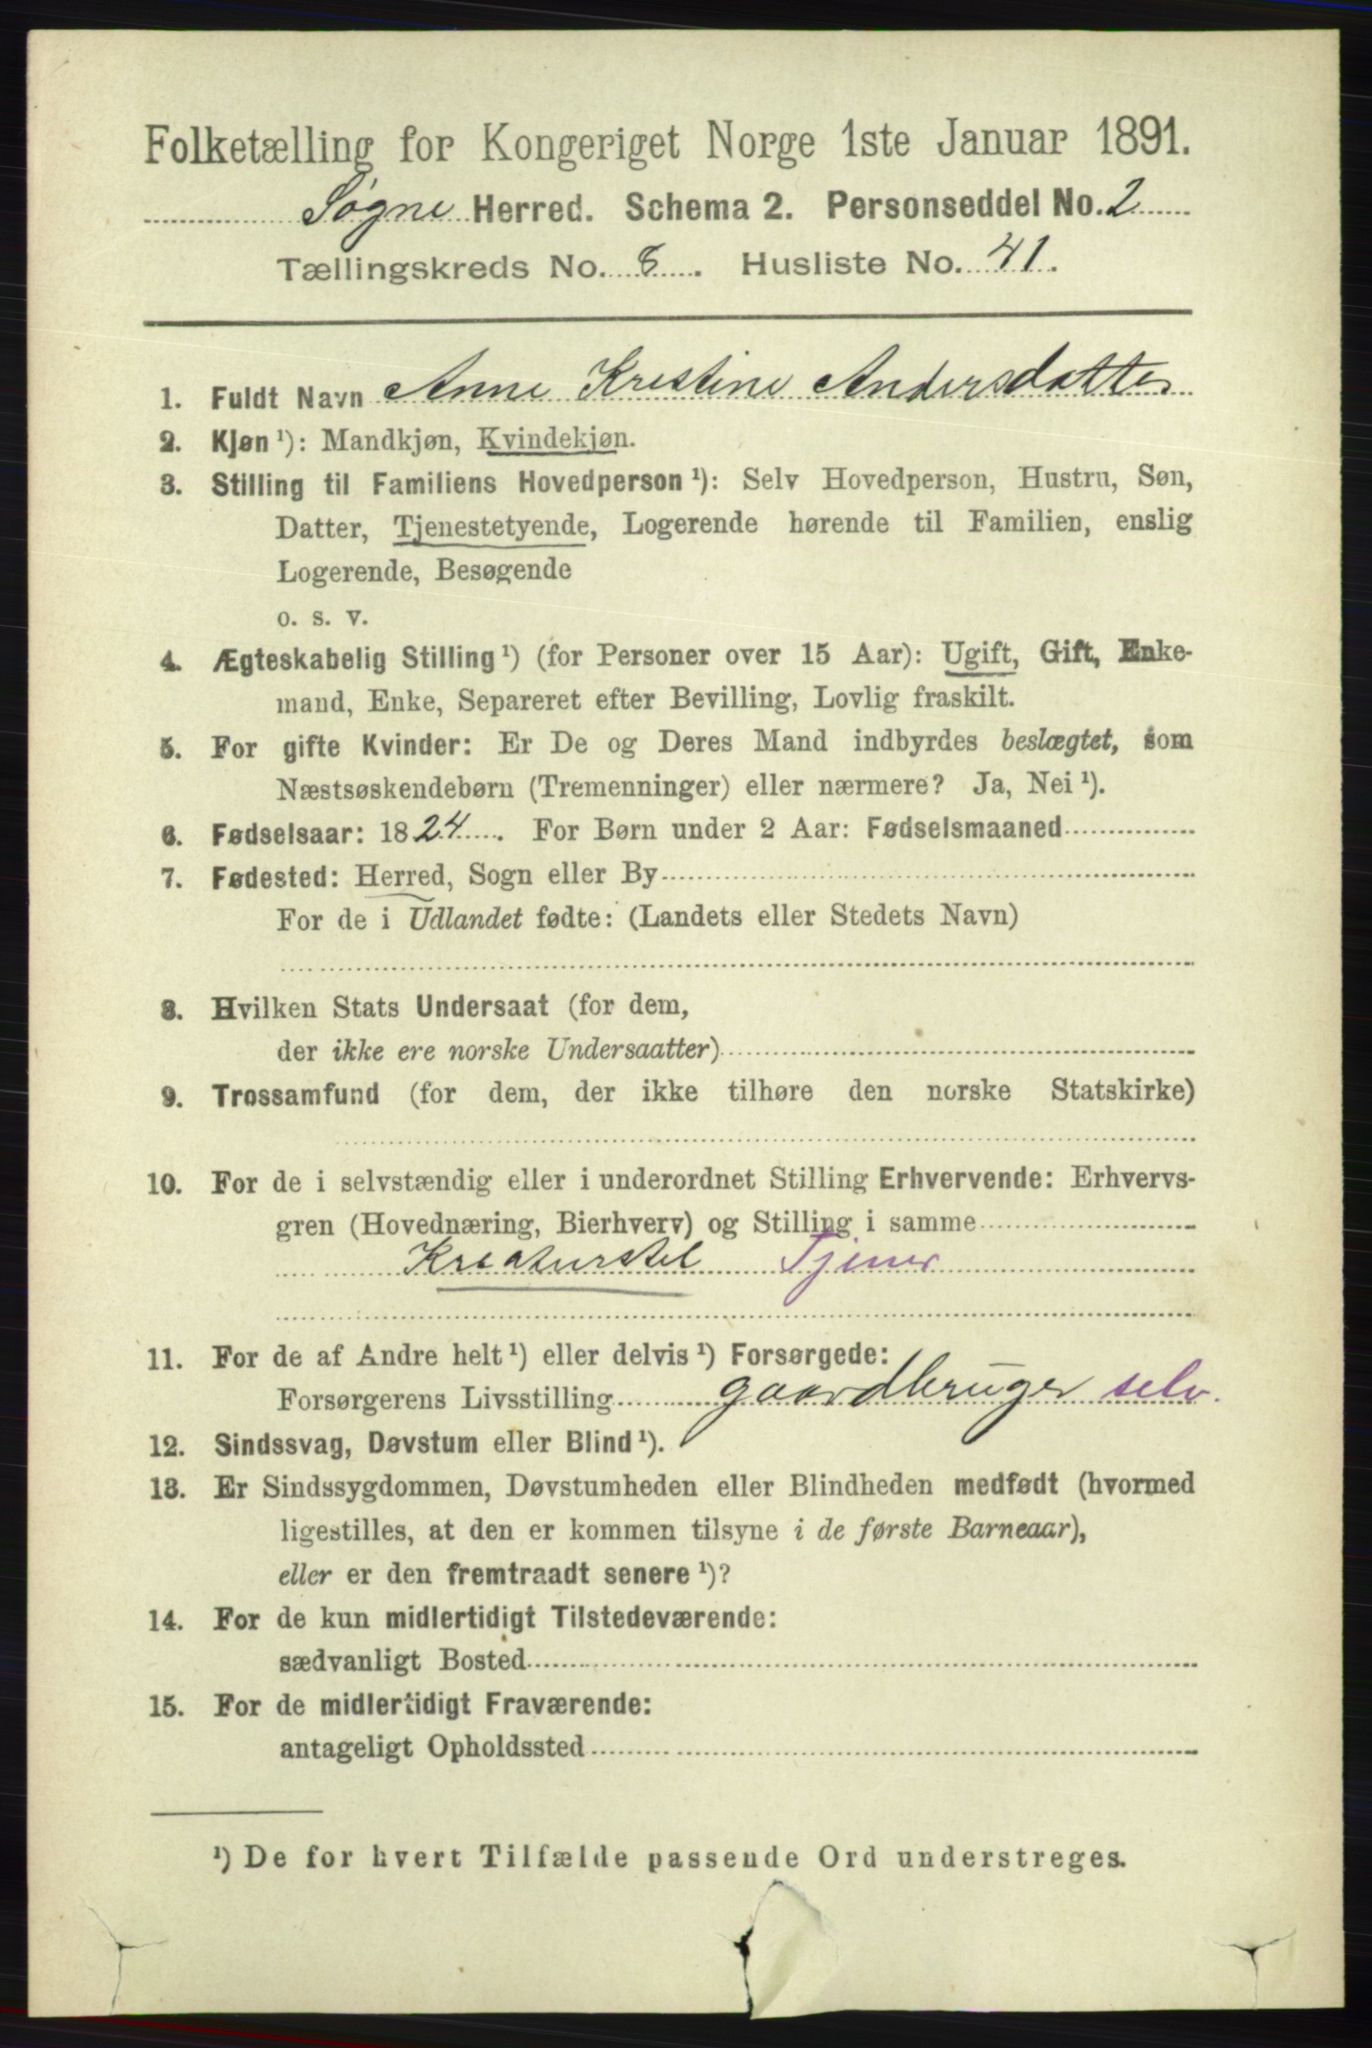 Folketælling for Kongeriget Norge 1ste Januar 1891.
Søgne Herred. Schema 2. Personseddel No. 2
Tællingskreds No. 8. Husliste No. 41.
1. Fuldt Navn Anne Kristine Andersdatter
2. Kjøn ¹): Mandkjøn, Kvindekjøn.
3. Stilling til Familiens Hovedperson ¹): Selv Hovedperson, Hustru, Søn,
Datter, Tjenestetyende, Logerende hørende til Familien, enslig
Logerende, Besøgende
o. s. v.
4. Ægteskabelig Stilling ¹) (for Personer over 15 Aar): Ugift, Gift, Enke-
mand, Enke, Separeret efter Bevilling, Lovlig fraskilt.
5. For gifte Kvinder: Er De og Deres Mand indbyrdes beslægtet, som
Næstsøskendebørn (Tremenninger) eller nærmere? Ja, Nei ¹).
6. Fødselsaar: 1824. For Børn under 2 Aar: Fødselsmaaned
7. Fødested: Herred, Sogn eller By
For de i Udlandet fødte: (Landets eller Stedets Navn)
8. Hvilken Stats Undersaat (for dem,
der ikke ere norske Undersaatter)
9. Trossamfund (for dem, der ikke tilhøre den norske Statskirke)
10. For de i selvstændig eller i underordnet Stilling Erhvervende: Erhvervs-
gren (Hovednæring, Bierhverv) og Stilling i samme
Kreaturstel Tjener
11. For de af Andre helt ¹) eller delvis ¹) Forsørgede:
Forsørgerens Livsstilling gaardbruger selv.
12. Sindssvag, Døvstum eller Blind ¹).
13. Er Sindssygdommen, Døvstumheden eller Blindheden medfødt (hvormed
ligestilles, at den er kommen tilsyne i de første Barneaar),
eller er den fremtraadt senere ¹)?
14. For de kun midlertidigt Tilstedeværende:
sædvanligt Bosted
15. For de midlertidigt Fraværende:
antageligt Opholdssted
¹) De for hvert Tilfælde passende Ord understreges.